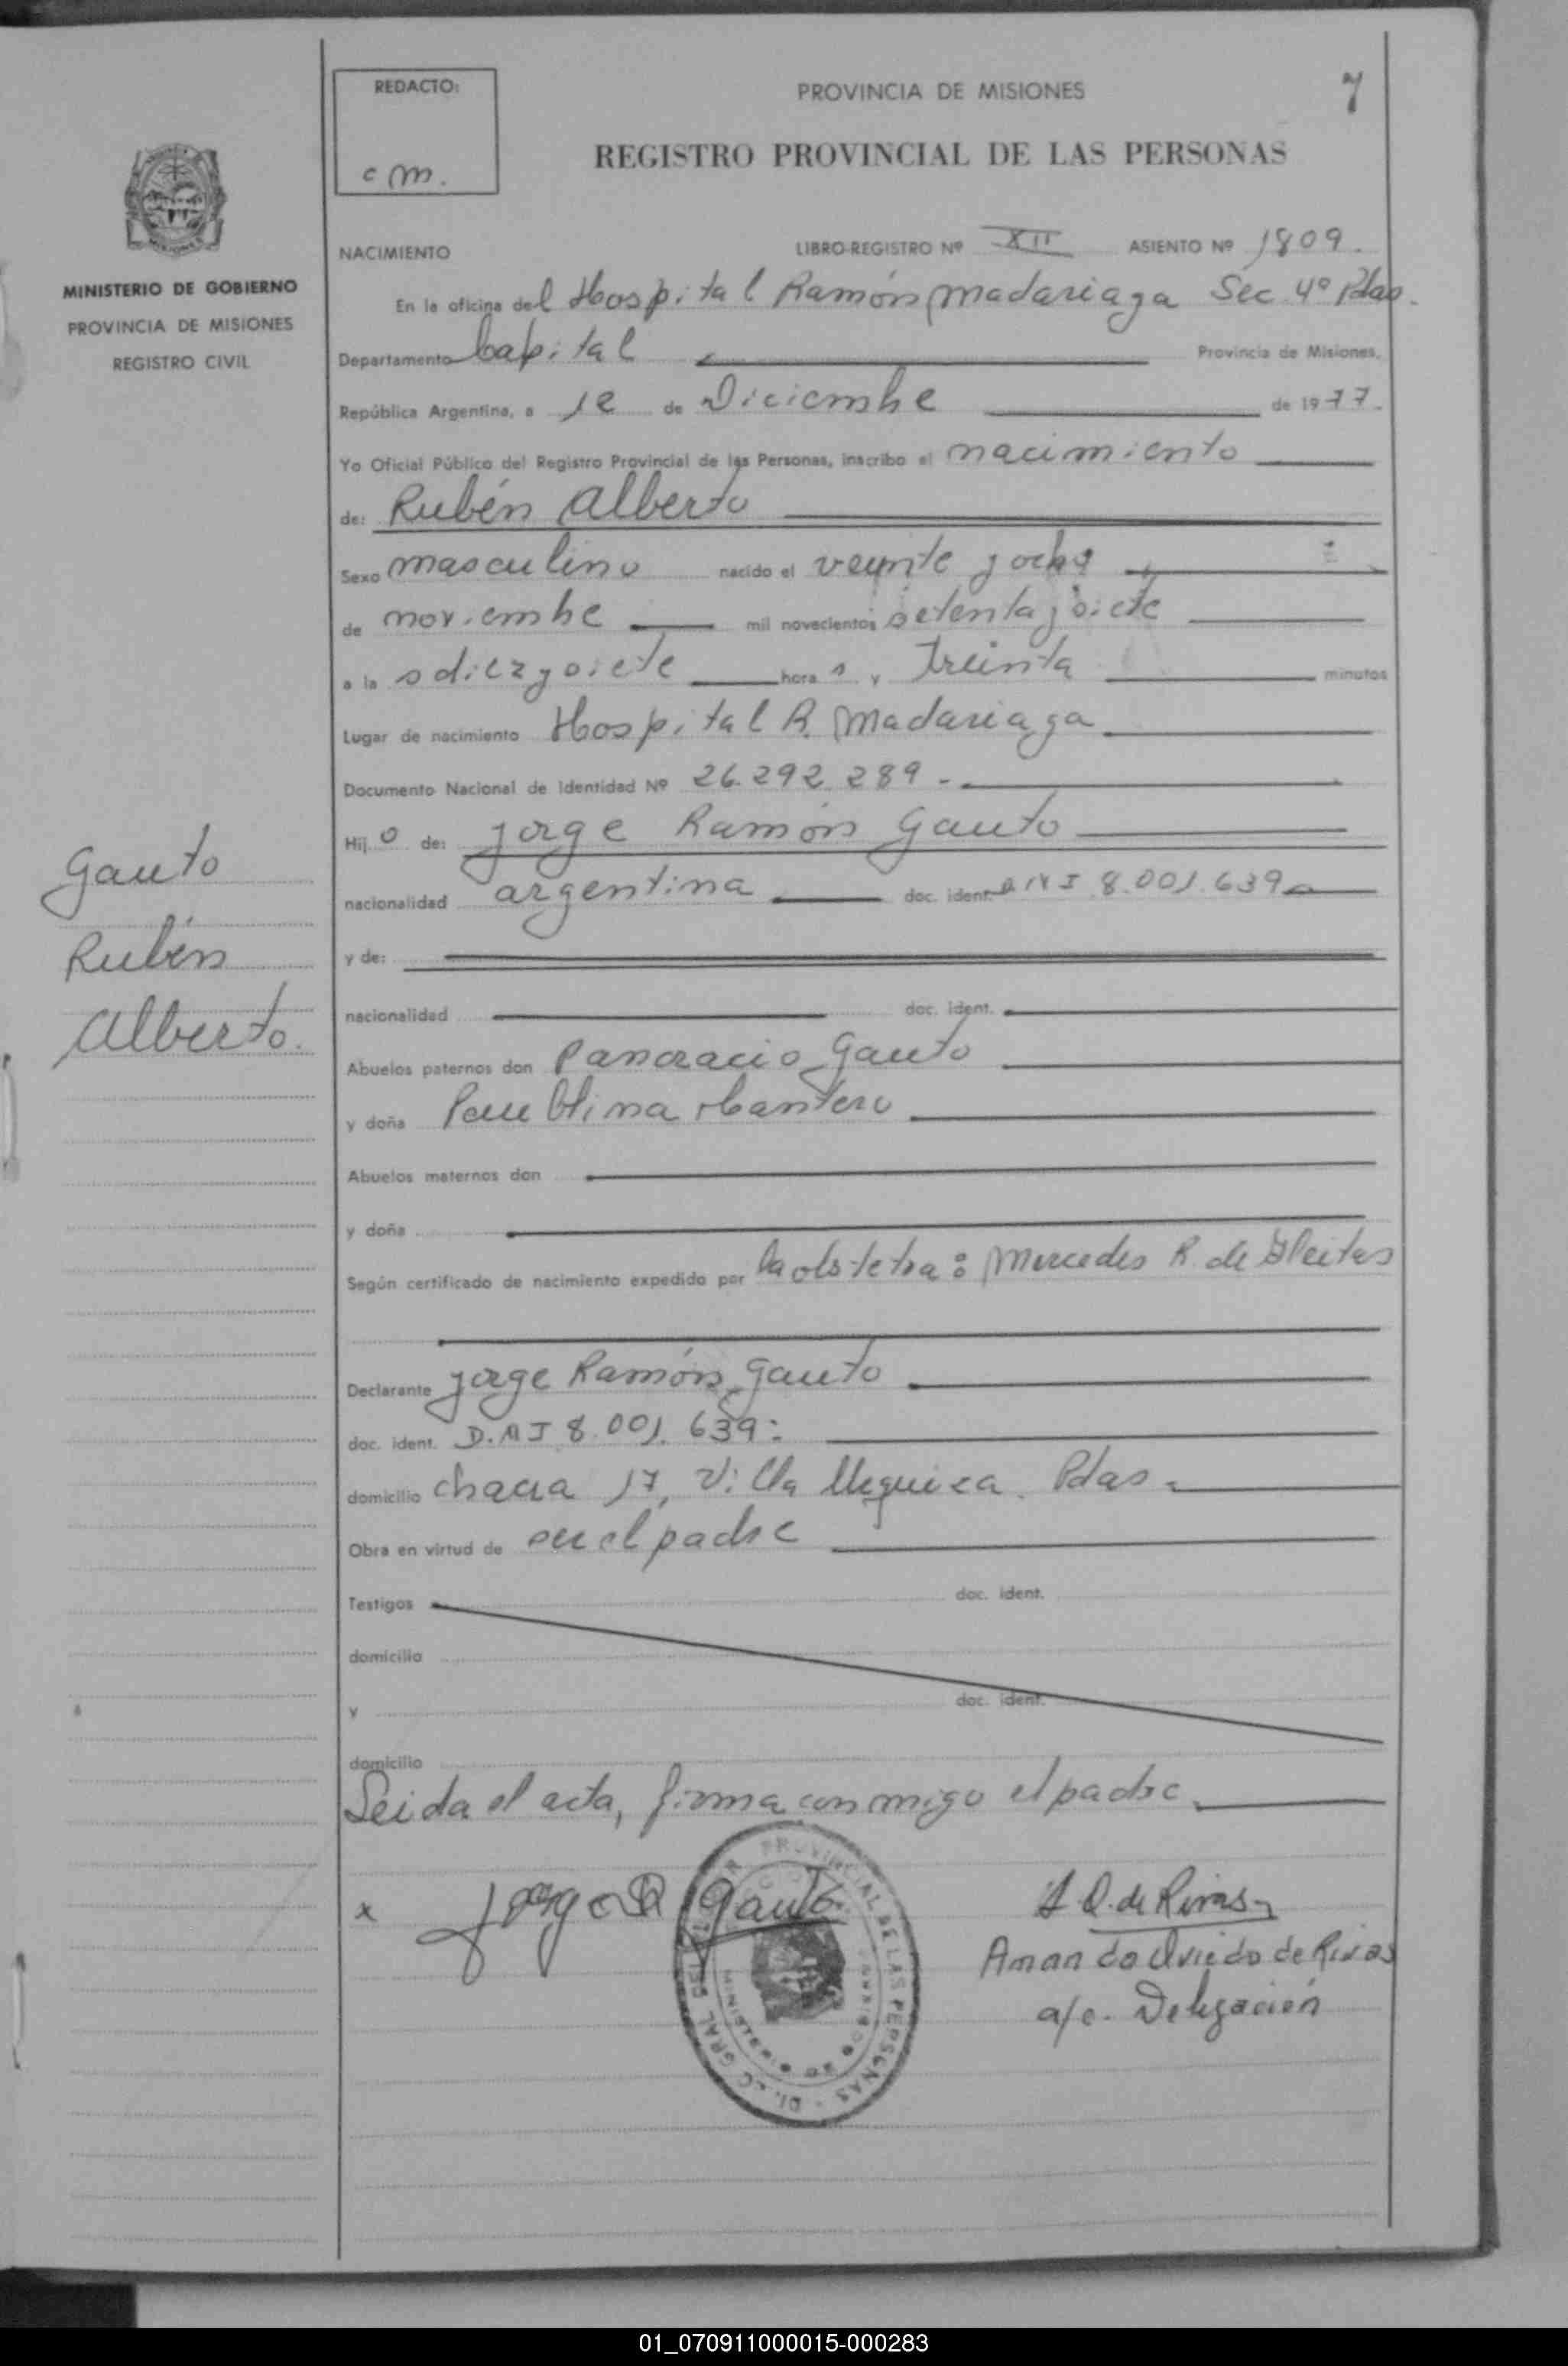 REDACTO:
c m.
PROVINCIA DE MISIONES
7
REGISTRO PROVINCIAL DE LAS PERSONAS
MINISTERIO DE GOBIERNO
PROVINCIA DE MISIONES
REGISTRO CIVIL
NACIMIENTO LIBRO-REGISTRO Nº XII ASIENTO Nº 1809.
En la oficina del Hospital Ramón Madariaga Sec 4º Pdas.
Departamento Capital Provincia de Misiones,
República Argentina, a 1º de Diciembre de 1977.
Yo Oficial Público del Registro Provincial de las Personas, inscribo el nacimiento
de: Rubén Alberto
Sexo masculino nacido el veinte y ocho
de noviembre mil novecientos setenta y siete
a la s diez y siete hora s y treinta minutos
Lugar de nacimiento Hospital R. Madariaga
Documento Nacional de Identidad Nº 26.292.289-
Hij o de: Jorge Ramón Gauto
nacionalidad argentina doc. ident. D.N.I 8.001.639
y de:
nacionalidad doc. ident.
Abuelos paternos don Pancracio Gauto
y doña Paublina Cantero
Abuelos maternos don
y doña
Según certificado de nacimiento expedido por la obstetra: Mercedes R. de Gleitas
Declarante Jorge Ramón Gauto
doc. ident. D.N.I 8.001.639:
domicilio chacra 17, Villa Urquiza. Pdas.
Obra en virtud de ser el padre
Testigos doc. ident.
domicilio
y doc. ident.
domicilio
Leida el acta, firma conmigo el padre
Gauto
Rubén
Alberto.
x Jorge R Gauto
A O. de Rivas
Amanda Oviedo de Rivas
a/c. Delegación
01_070911000015-000283